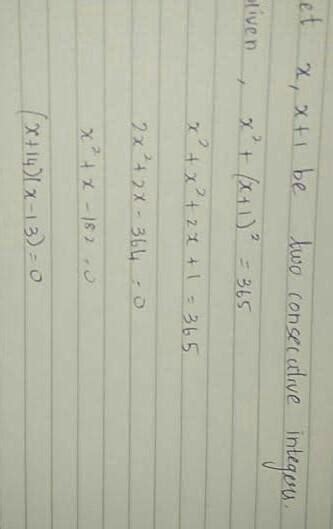 et x, x+1 be two consecutive integers.
given, x² + (x+1)² = 365
x² + x² + 2x + 1 = 365
2x² + 2x - 364 = 0
x² + x - 182 = 0
(x+14)(x-13) = 0